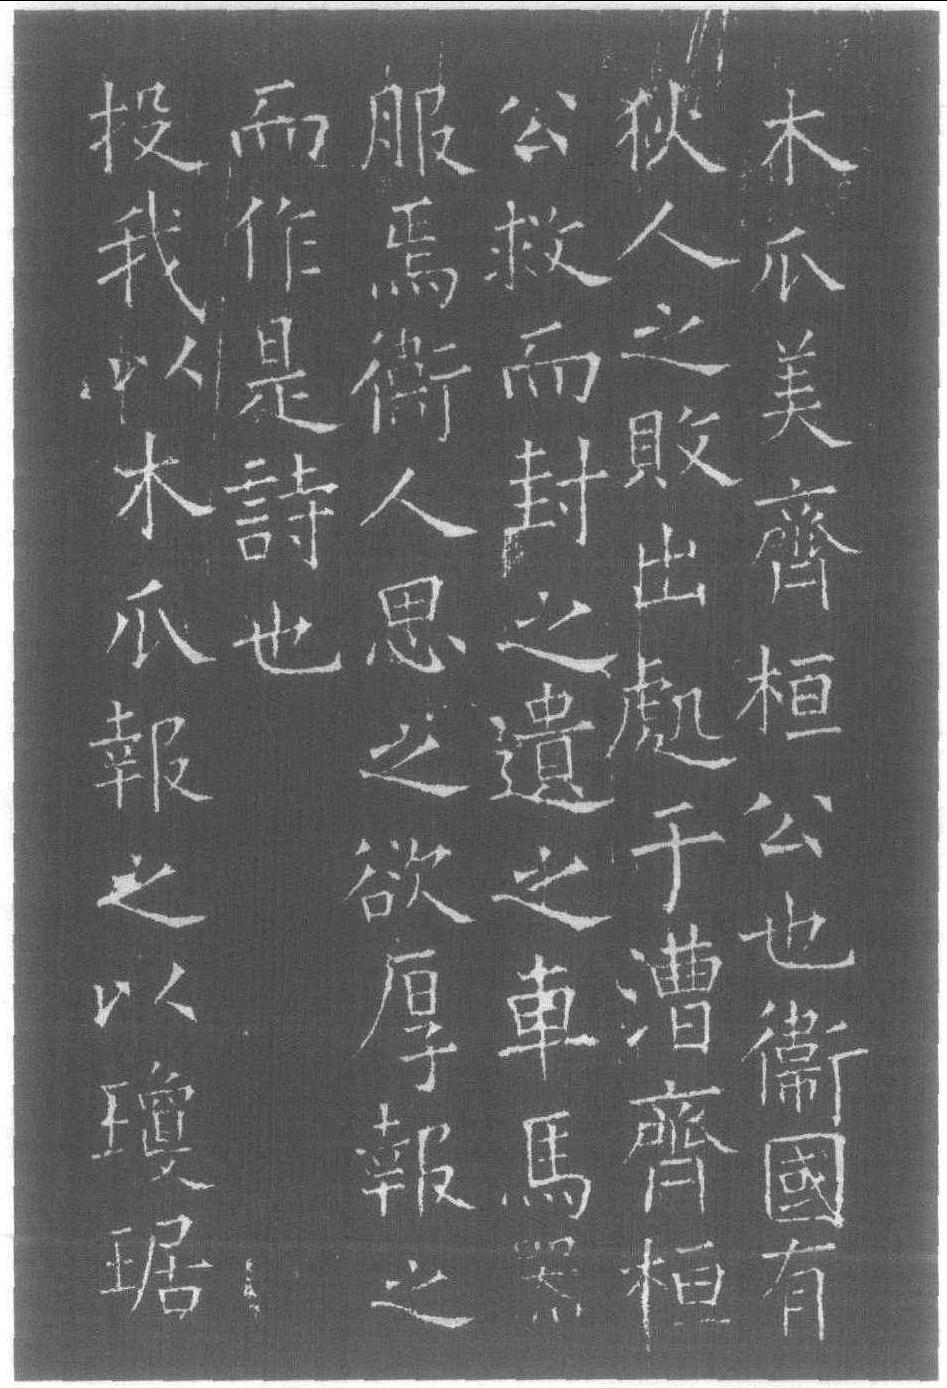 木瓜美齊桓公也衞國有
狄人之敗出處于漕齊桓
公救而封之遺之車馬器
服焉衞人思之欲厚報之
而作是詩也
投我以木瓜報之以瓊琚